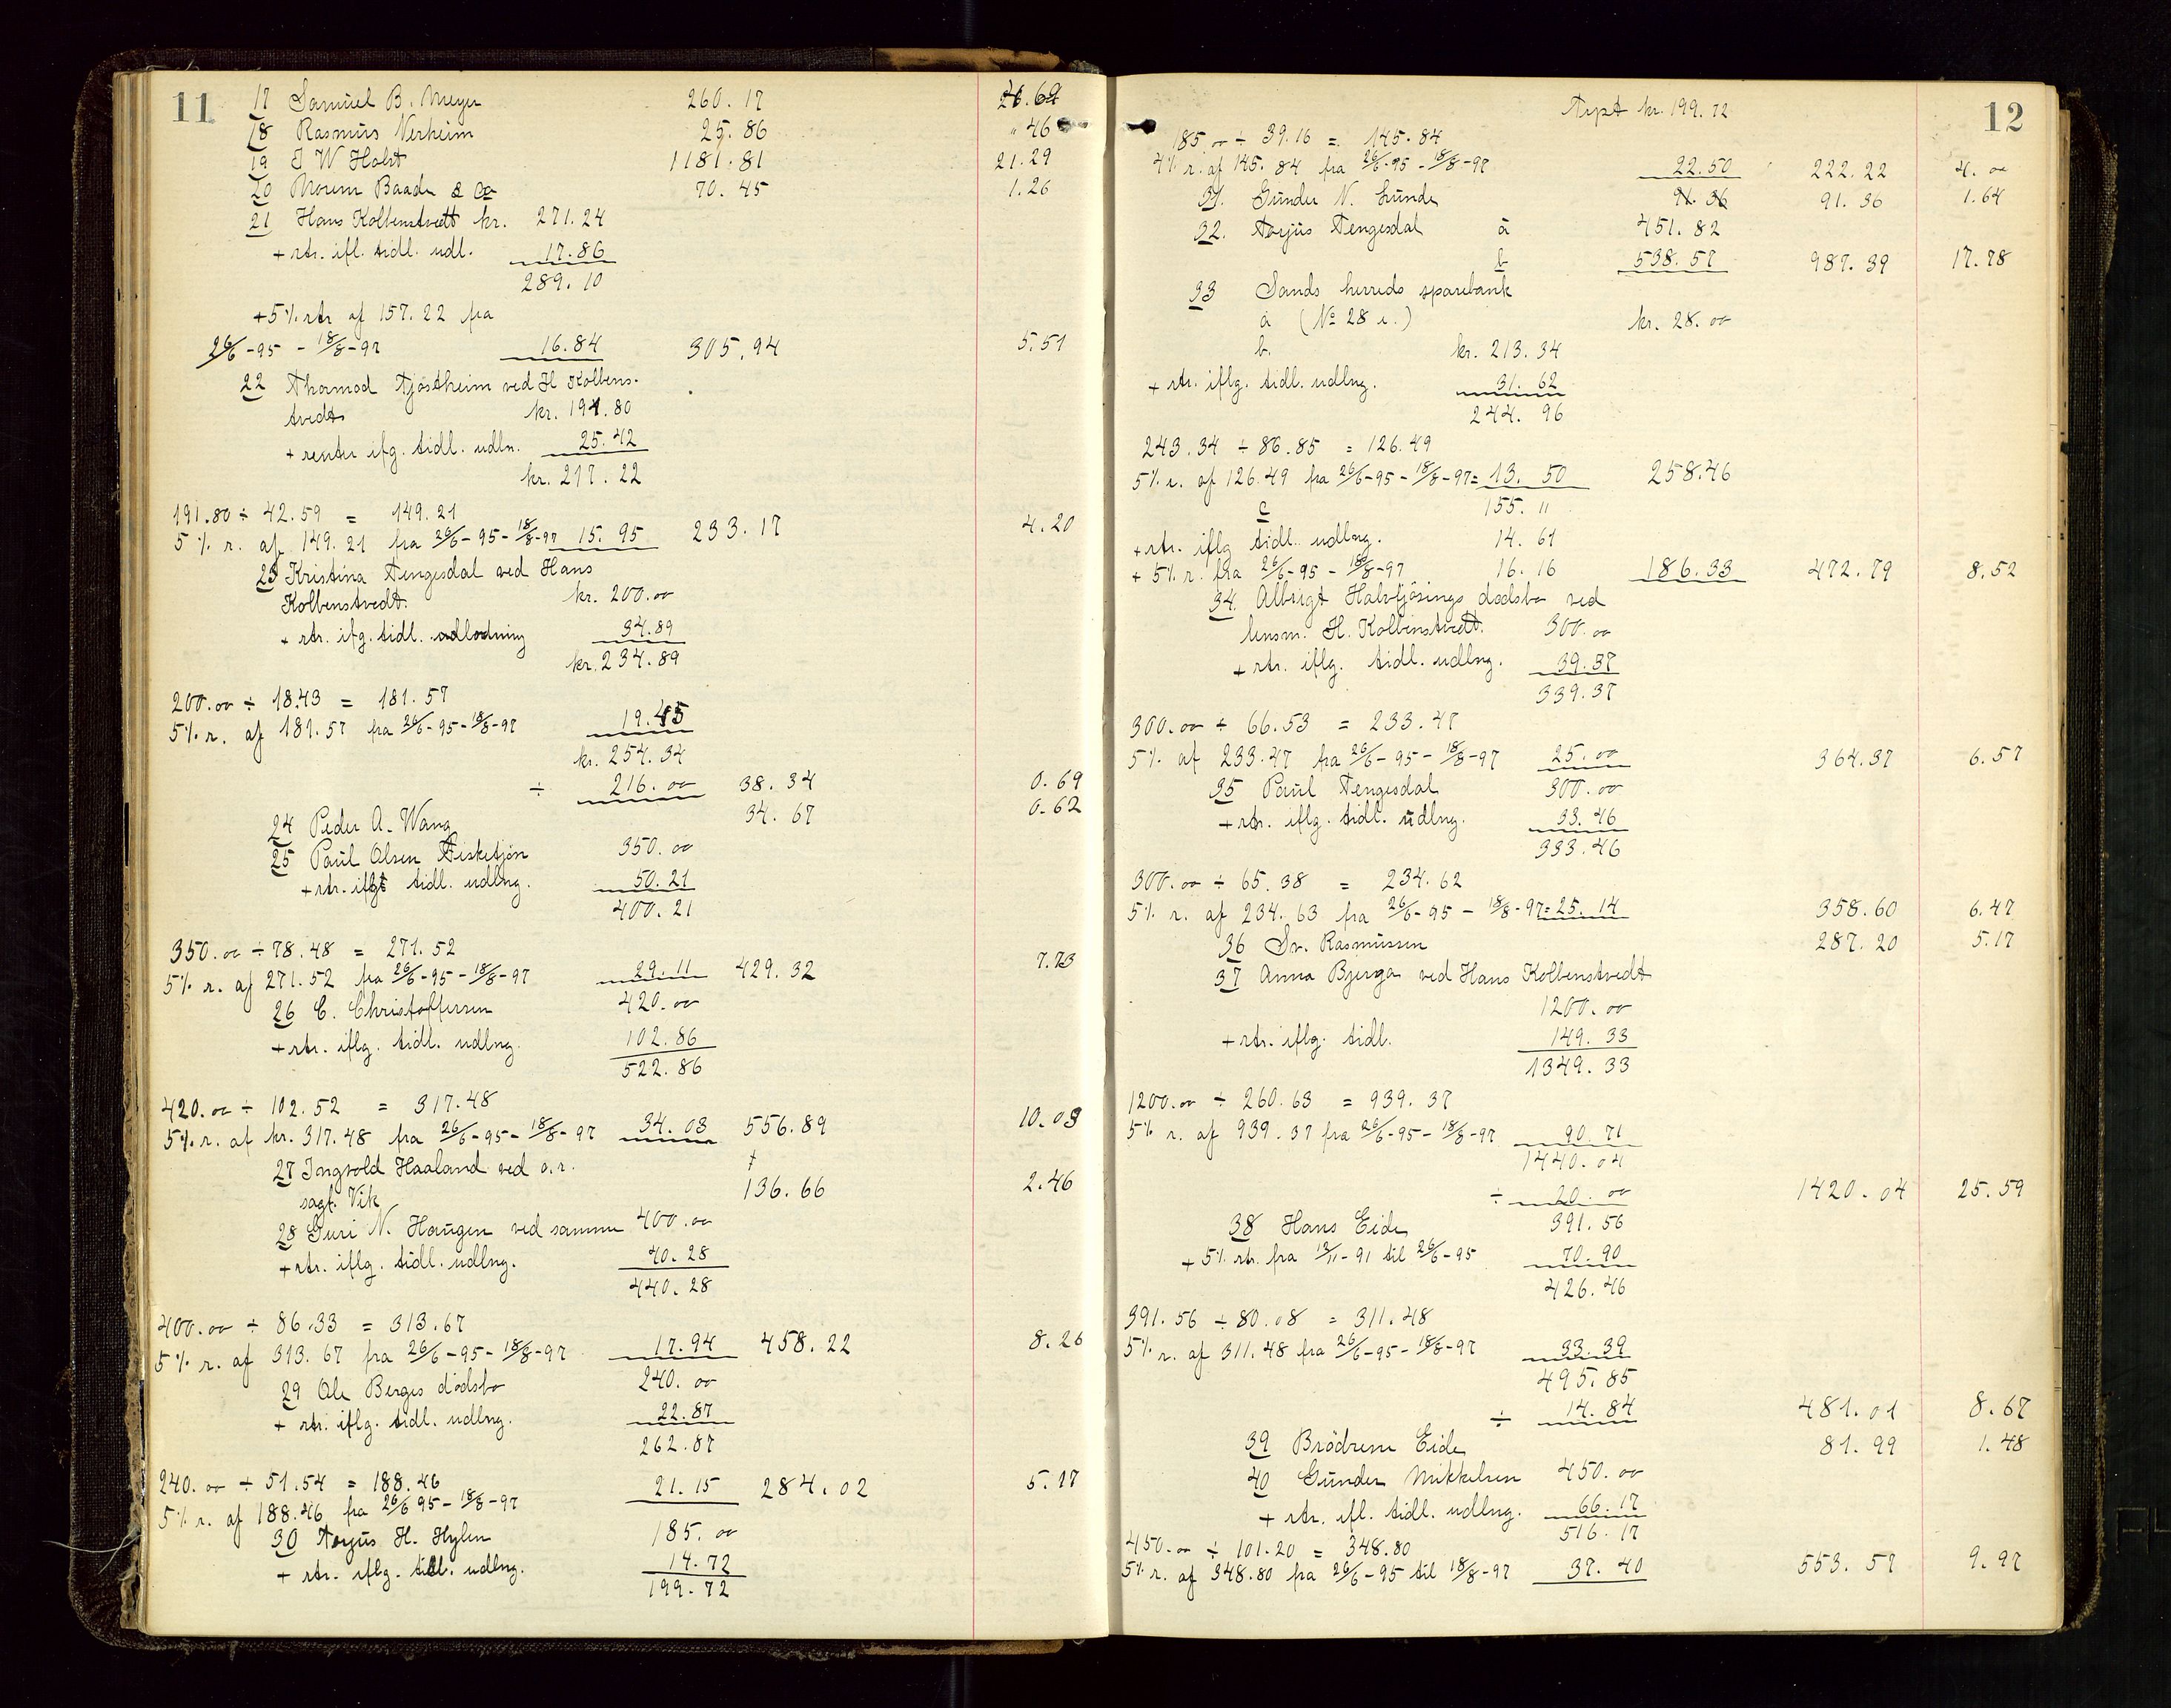 11
17 Samuel B. Meyer 260.17
18 Rasmus Nerheim 25.86 " 46
19 J W Holst 1181.81 21.29
20 Baade & Co 70.45 1.26
21 Hans Kolbenstvedt kr. 271.24
+ rtr. ifl. tidl. udl. 17.86
289.10
+ 5% rtr af 157.22 fra
26/6-95 - 18/8-97 16.84 305.94 5.51
22 Thormod Tjöstheim ved H Kolbens-
tvedt kr. 191.80
+ renter ifg. tidl. udln. 25.42
kr. 217.22
191.80 ÷ 42.59 = 149.21
5% r. af 149.21 fra 26/6-95-18/8-97 15.95 233.17 4.20
23 Kristina Tengesdal ved Hans
Kolbenstvedt. kr. 200.00
+ rtr. ifg. tidl. udlodning 34.89
kr. 234.89
200.00 ÷ 18.43 = 181.57
5% r. af 181.57 fra 26/6-95-18/8-97 19.45
kr. 254.34
÷ 216.00 38.34 0.69
24 Peder A. Wang 34.67 0.62
25 Paul Olsen Fisketjön 350.00
+ rtr. iflgt tidl. udlng. 50.21
400.21
350.00 ÷ 78.48 = 271.52
5% r. af 271.52 fra 26/6-95-18/8-97 29.11 429.32 7.73
26 C. Christoffersen 420.00
+ rtr. iflg. tidl. udlng. 102.86
522.86
420.00 ÷ 102.52 = 317.48
5% r. af kr. 317.48 fra 26/6-95-18/8-97 34.03 556.89 10.03
27 Ingvold Haaland ved o.r.
sagf. Vik 136.66 2.46
28 Guri N. Haugen ved samme 400.00
+ rtr. iflg. tidl. udlng. 40.28
440.28
400.00 ÷ 86.33 = 313.67
5% r. af 313.67 fra 26/6-95-18/8-97 17.94 458.22 8.26
29 Ole Berges dödsbo 240.00
+ rtr. iflg. tidl. udlng. 22.87
262.87
240.00 ÷ 51.54 = 188.46
5% r. af 188.46 fra 26/6 95-18/8-97 21.15 284.02 5.17
30 Torjus H. Hylen 185.00
+ rtr. iflg. tidl. udlng. 14.72
199.72
12
Trpt kr. 199.72
185.00 ÷ 39.16 = 145.84
4% r. af 145.84 fra 26/6-95-18/8-97 22.50 222.22 4.00
31. Gunder N. Lunde 91.36 91.36 1.64
32. Torjus Tengesdal a 451.82
b 538.57 987.39 17.78
33 Sands herreds sparebank
a (No 28 r.) kr. 28.00
b. kr. 213.34
+ rtr. iflg. tidl. udlng. 31.62
244.96
243.34 ÷ 86.85 = 126.49
5% r. af 126.49 fra 26/6-95-18/8-97 = 13.50 258.46
c 155.11
+ rtr. iflg tidl. udlng. 14.61
+ 5% r. fra 26/6-95-18/8-97 16.16 186.33 472.79 8.52
34. Albrigt Halvfjösings dødsbo ved
lensm. H. Kolbenstvedt. 300.00
+ rtr. iflg. tidl. udlng. 39.37
339.37
300.00 ÷ 66.53 = 233.47
5% af 233.47 fra 26/6-95-18/8-97 25.00 364.37 6.57
35 Paul Tengesdal 300.00
+ rtr. iflg. tidl. udlng. 33.46
333.46
300.00 ÷ 65.38 = 234.62
5% r. af 234.63 fra 26/6-95-18/8-97 = 25.14 358.60 6.47
36 Sv. Rasmussen 287.20 5.17
37 Anna Bjerga ved Hans Kolbenstvedt
1200.00
+ rtr. iflg. tidl. 149.33
1349.33
1200.00 ÷ 260.63 = 939.37
5% r. af 939.37 fra 26/6-95-18/8-97 90.71
1440.04
÷ 20.00 1420.04 25.59
38 Hans Eide 391.56
+ 5% rtr. fra 12/11-91 til 26/6-95 70.90
426.46
391.56 ÷ 80.08 = 311.48
5% r. af 311.48 fra 26/6-95-18/8-97 33.39
495.85
÷ 14.84 481.01 8.67
39 Brödrene Eide 81.99 1.48
40 Gunder Mikkelsen 450.00
+ rtr. ifl. tidl. udlng. 66.17
516.17
450.00 ÷ 101.20 = 348.80
5% r. af 348.80 fra 26/6-95 til 18/8-97 37.40 553.57 9.97